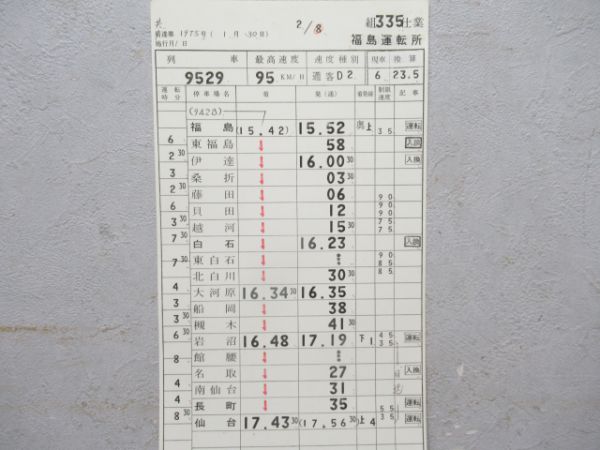 組335仕業
福島運転所
1975年(1月30日)
施行月/日
列 車 最高速度 速度種別 現車 換算
9529 95 KM/H 通客D2 6 23.5
運転時分 停車場名 着 発(通) 着発線 制限速度 記事
(942B)
福島 (15.42) 15.52 上 35 運転
6
東福島 ↓ 58 入換
2 30
伊達 ↓ 16.00 30 入換
3
桑折 ↓ 03 30
2 30
藤田 ↓ 06 90
6
貝田 ↓ 12 90 90
3 30
越河 ↓ 15 30 75 75
7 30
白石 ↓ 16.23 入換
東白石 ↓ 90 85
7 30
北白川 ↓ 30 30 85
4
大河原 16.34 30 16.35
3
船岡 ↓ 38
3 30
槻木 ↓ 41 30
6 30
岩沼 16.48 17.19 下1 45 35 運転
館腰 ↓
8
名取 ↓ 27 入換
4
南仙台 ↓ 31
4
長町 ↓ 35 55 運転
8 30
仙台 17.43 30 (17.56 30) 上4 35 運転